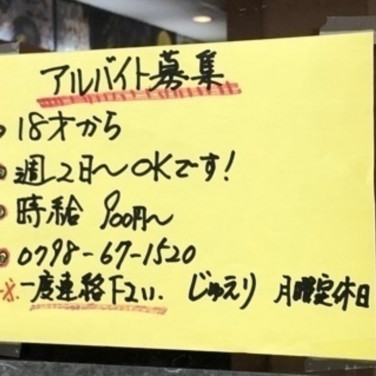 アルバイト募集
18才から
週2日〜OKです!
時給 900円〜
0798-67-1520
※一度連絡下さい. じゅえり 月曜定休日